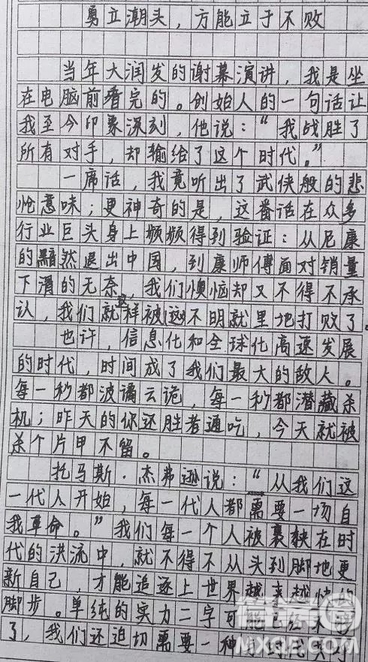 勇立潮头，方能立于不败
当年大润发的谢幕演讲，我是坐
在电脑前看完的。创始人的一句话让
我至今印象深刻，他说：“我战胜了
所有对手，却输给了这个时代。”
一席话，我竟听出了武侠般的悲
怆意味；更神奇的是，这番话在众多
行业巨头身上频频得到验证：从尼康
的黯然退出中国，到康师傅面对销量
下滑的无奈，我们懊恼却又不得不承
认，我们就这样被这不明就里地打败了。
也许，信息化和全球化高速发展
的时代，时间成了我们最大的敌人。
每一秒都波谲云诡，每一秒都潜藏杀
机；昨天的你还胜者通吃，今天就被
杀个片甲不留。
托马斯·杰弗逊说：“从我们这
一代人开始，每一代人都需要一场自
我革命。”我们每一个人被裹挟在时
代的洪流中，就不得不从头到脚地更
新自己 才能追逐上世界越来越快的
脚步。单纯的实力二字可能已经不够
了，我们还迫切需要一种